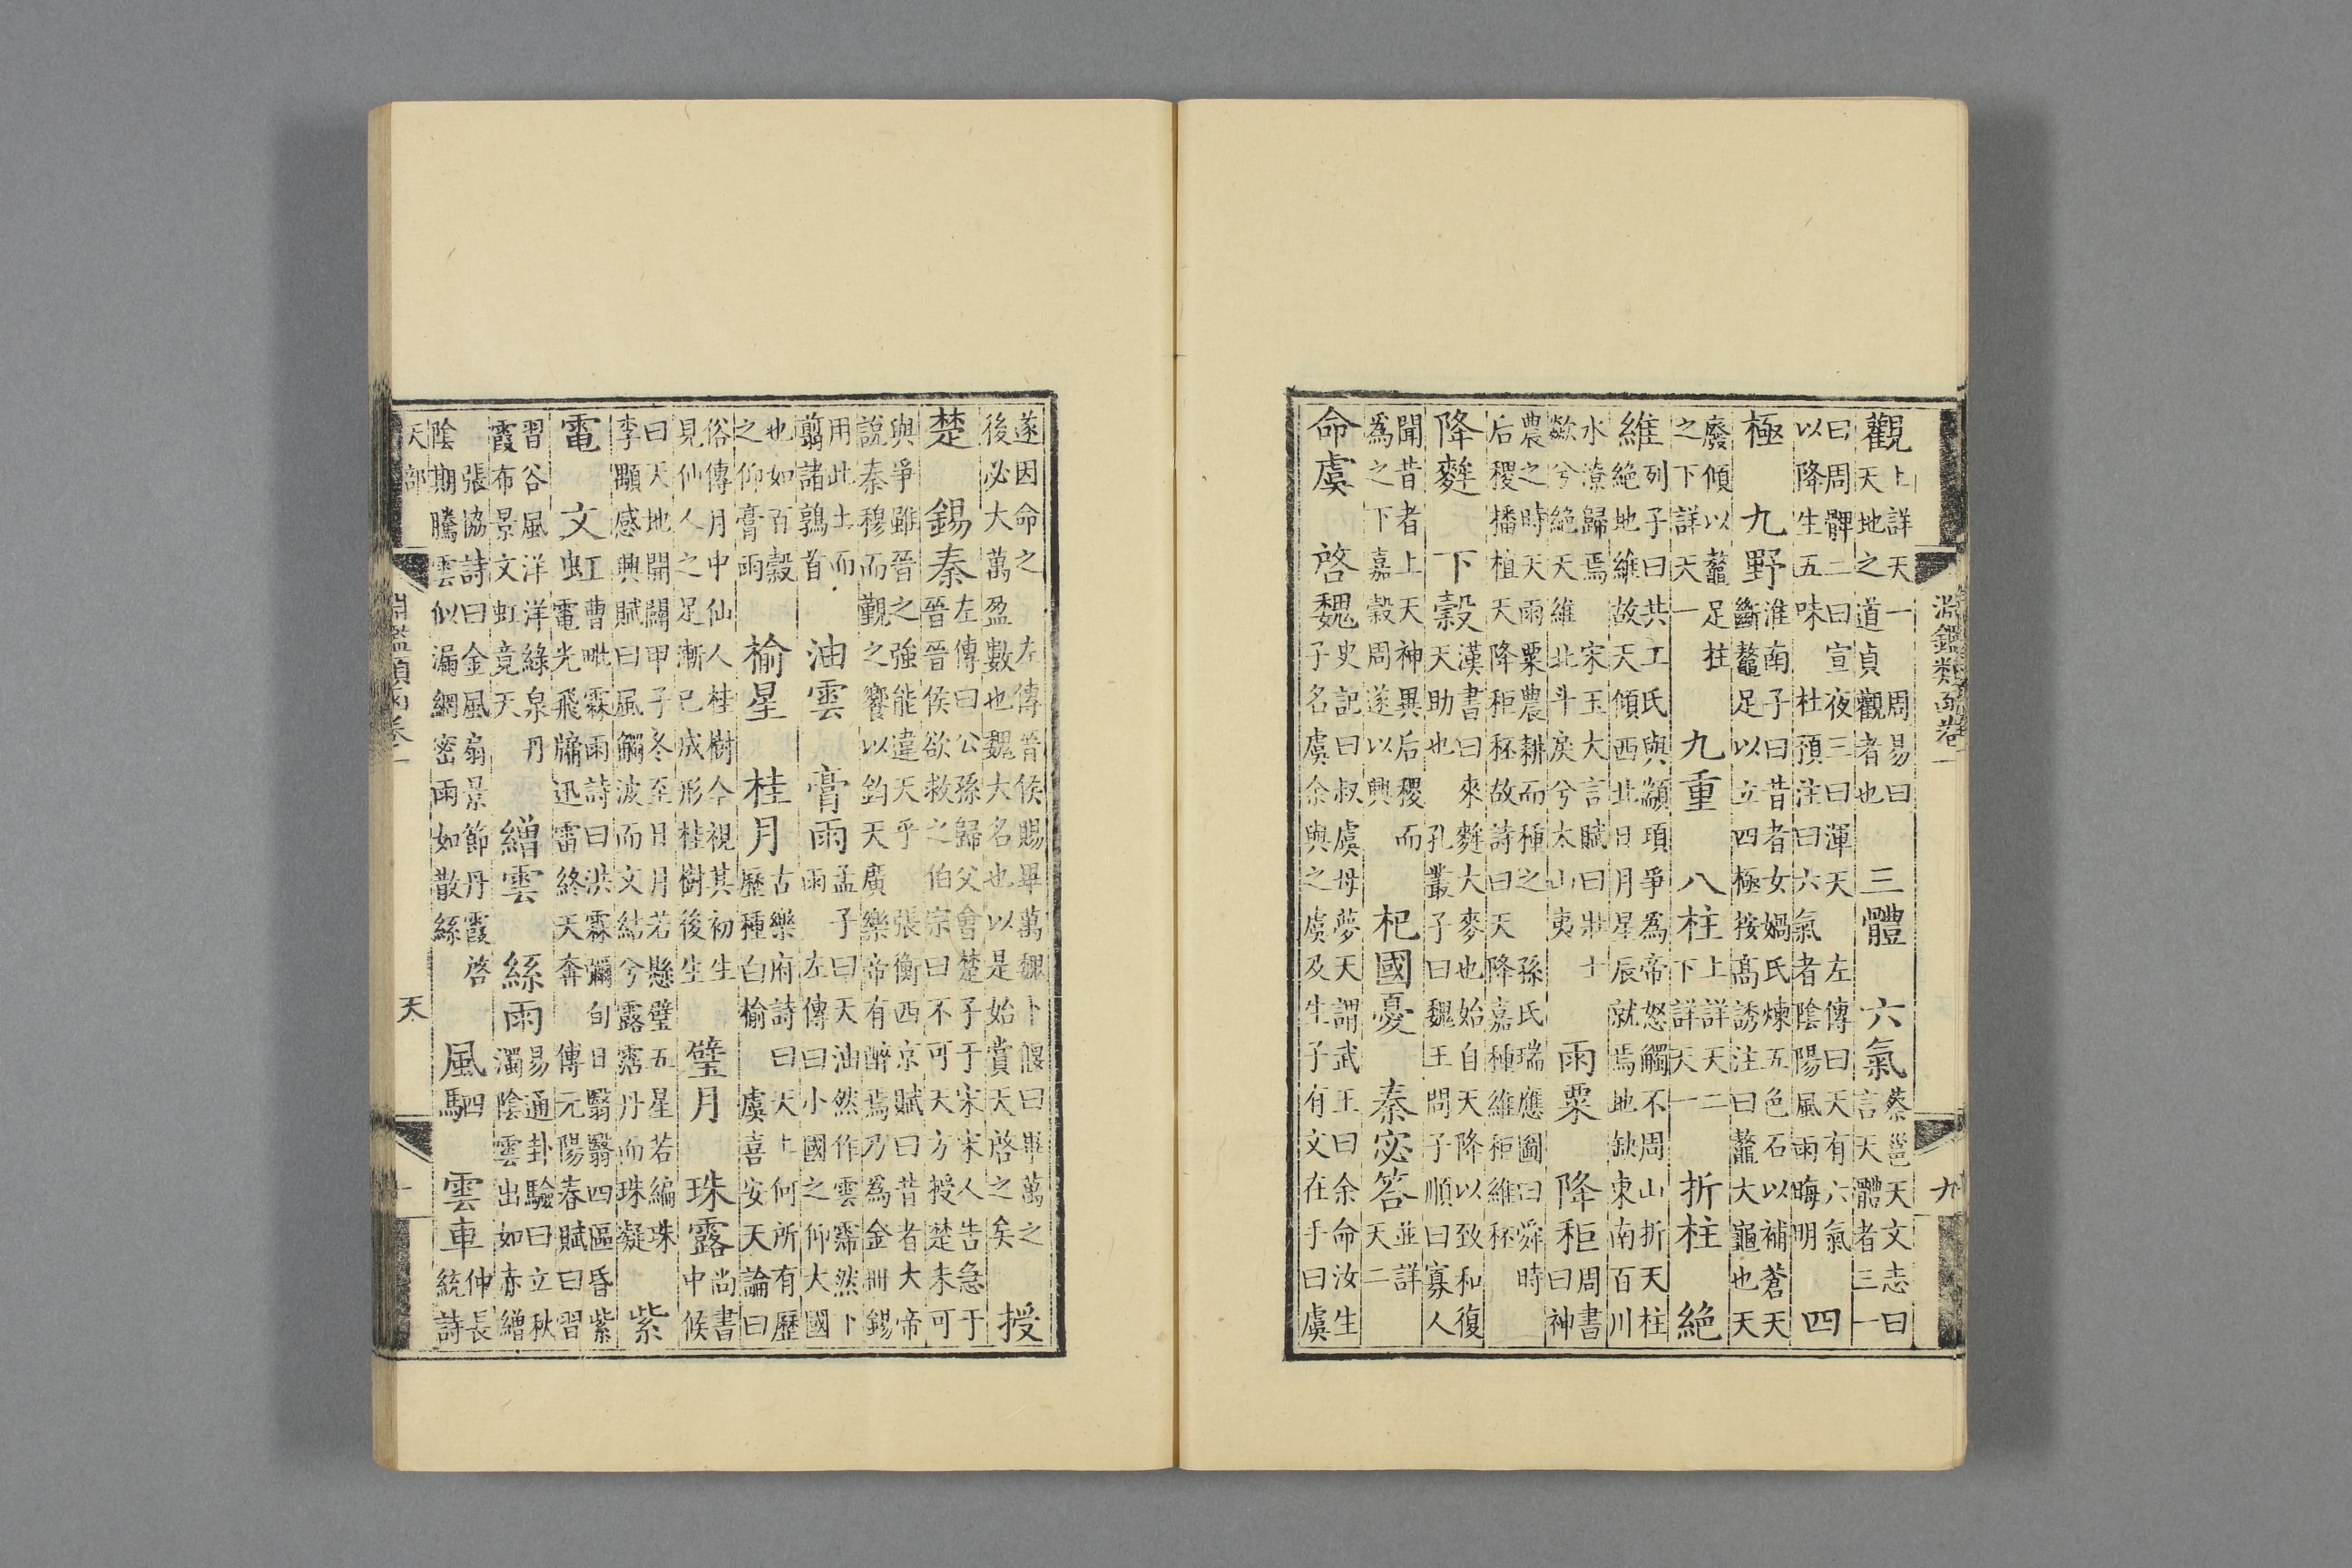 淵鑑類函卷一 九
觀上詳天一 周易曰天地之道貞觀者也 三體 六氣蔡邕天文志曰言天體者三一
曰周髀二曰宣夜三曰渾天 左傳曰天有六氣以降生五味 杜預注曰六氣者陰陽風雨晦明 四
極 九野淮南子曰昔者女媧氏煉五色石以補蒼天斷鼇足以立四極按高誘注曰鼇大龜也天
廢傾以鼇足柱之下詳天一 九重 八柱上詳天二下詳天一 折柱 絕
維列子曰共工氏與顓頊爭為帝怒觸不周山折天柱絕地維故天傾西北日月星辰就焉地缺東南百川
水潦歸焉 宋玉大言賦曰壯士歘兮絕天維北斗戾兮太山夷 雨粟 降秬周書曰神
農之時天雨粟農耕而種之 孫氏瑞應圖曰舜時后稷播植天降秬秠故詩曰天降嘉種維秬維秠
降麰 下穀漢書曰來麰大麥也始自天降以致和復天助也 孔叢子曰魏王問子順曰寡人
聞昔者上天神異后稷而為之下嘉穀周遂以興 杞國憂 秦宓答並詳天二
命虞 啓魏史記曰叔虞母夢天謂武王曰余命汝生子名虞余與之虞及生子有文在手曰虞
遂因命之 左傳晉侯賜畢萬魏卜偃曰畢萬之後必大萬盈數也魏大名也以是始賞天啓之矣 授
楚 錫秦左傳曰公孫歸父會楚子于宋宋人告急于晉晉侯欲救之伯宗曰不可天方授楚未可
與爭雖晉之強能違天乎 張衡西京賦曰昔者大帝說秦穆而觀之饗以鈞天廣樂帝有醉焉乃為金冊錫
用此土而翦諸鶉首 油雲 膏雨孟子曰天油然作雲霈然下雨 左傳曰小國之仰大國
也如百穀之仰膏雨 榆星 桂月古樂府詩曰天上何所有歷歷種白榆 虞喜安天論曰
俗傳月中仙人桂樹今視其初生見仙人之足漸已成形桂樹後生 璧月 珠露尚書中候
曰天地開闢甲子冬至日月若懸璧五星若編珠李顒感興賦曰風觸波而文結兮露霑丹而珠凝 紫
電 文虹曹毗霖雨詩曰洪霖瀰旬日翳翳四區昏紫電光飛牖迅雷終天奔 傅元陽春賦曰習
習谷風洋洋綠泉丹霞布景文虹竟天 繒雲 絲雨易通卦驗曰立秋濁陰雲出如赤繒
張協詩曰金風扇景節丹霞啓陰期騰雲似漏網密雨如散絲 風駟 雲車仲長統詩
天部 淵鑑類函卷一 天